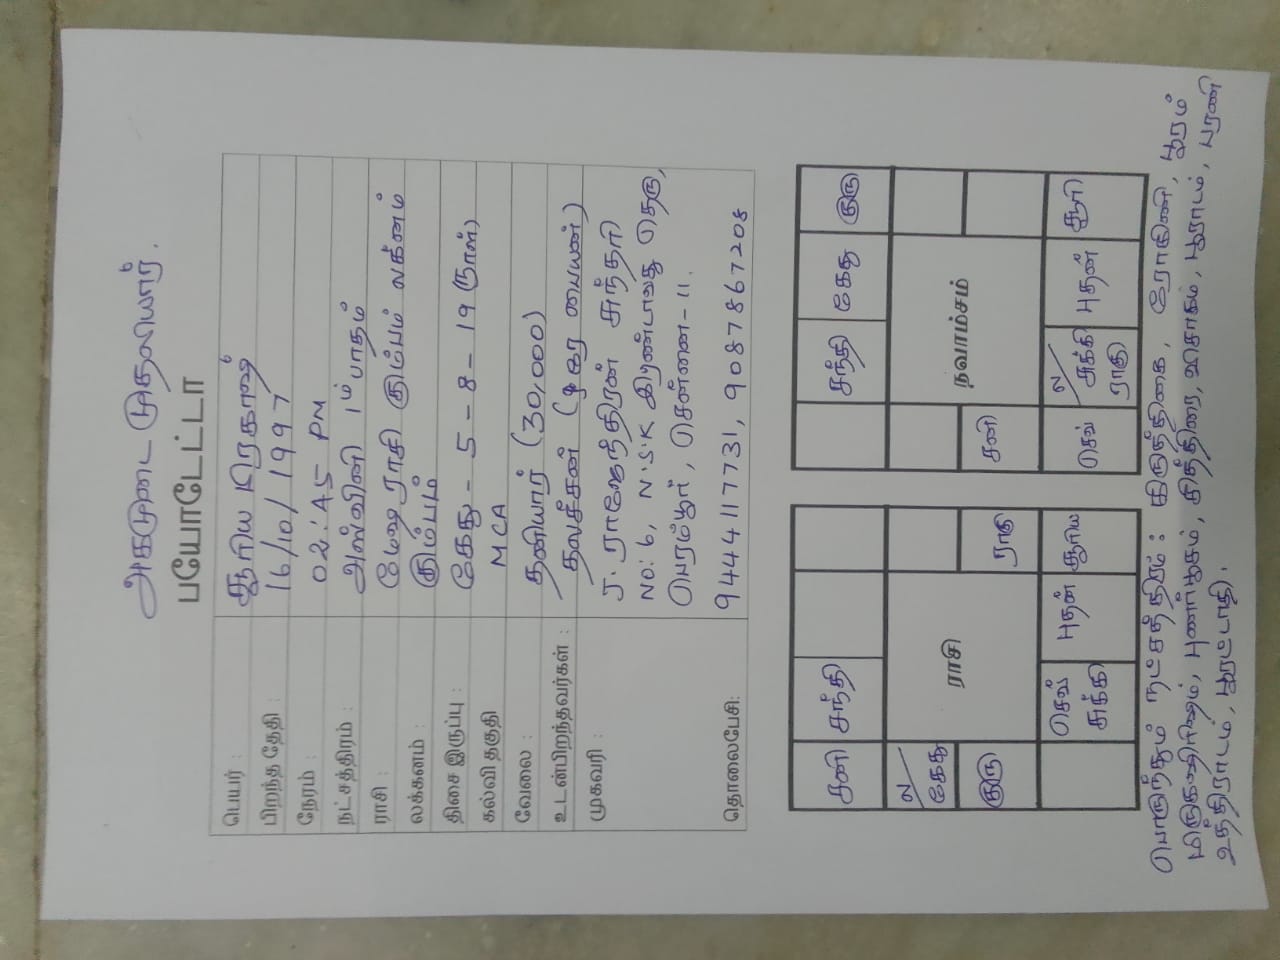 அகமுடை முதலியார்.
பயோடேட்டா
பெயர் : சூரிய பிரகாஷ்
பிறந்த தேதி : 16/10/1997
நேரம் : 02:45 PM
நட்சத்திரம் : அஸ்வினி 1ம் பாதம்
ராசி : மேஷ ராசி கும்பம் லக்னம்
லக்கனம் : கும்பம்
திசை இருப்பு : கேது - 5 - 8 - 19 (நாள்)
கல்வி தகுதி MCA
வேலை : தனியார் (30,000)
உடன்பிறந்தவர்கள் : தலச்சன் (ஒரே பையன்)
முகவரி : J. ராஜேந்திரன் சுந்தரி
NO: 6, N.S.K இரண்டாவது தெரு,
பெரம்பூர், சென்னை - 11.
தொலைபேசி: 9444117731, 9087867208
சனி சந்தி
ல
கேது
ராசி
குரு ராகு
செவ் சுக்கி புதன் சூரிய
சந்தி கேது குரு
நவாம்சம்
சனி
செவ் ல சுக்கி ராகு புதன் சூரி
பொருந்தும் நட்சத்திரம் : கிருத்திகை, ரோகிணி, பூரம்
மிருகஷிரிஷம், புணர்பூசம், சித்திரை, விசாகம், பூராடம், பரணி
உத்திராடம், பூரட்டாதி.